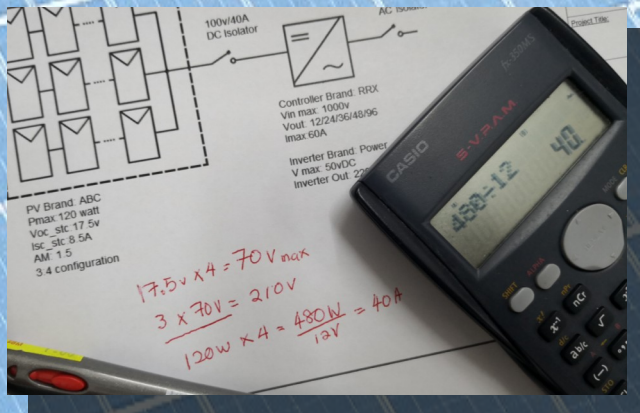 100v/40A
DC Isolator
AC Isolator
Project Title:
Controller Brand: RRX
Vin max: 1000v
Vout: 12/24/36/48/96
Imax:60A
Inverter Brand: Power
V max: 50vDC
Inverter Out: 22
PV Brand: ABC
Pmax:120 watt
Voc_stc:17.5v
Isc_stc:8.5A
AM: 1.5
3.4 configuration
17.5v x 4 = 70v max
3 x 70v = 210V
120w x 4 = 480W/12V = 40A
CASIO
S-V.P.A.M.
480÷12
40.
MODE
SHIFT
ALPHA
nPr
nCr
x!
x⁻¹
√
ab/c
(−)
STO